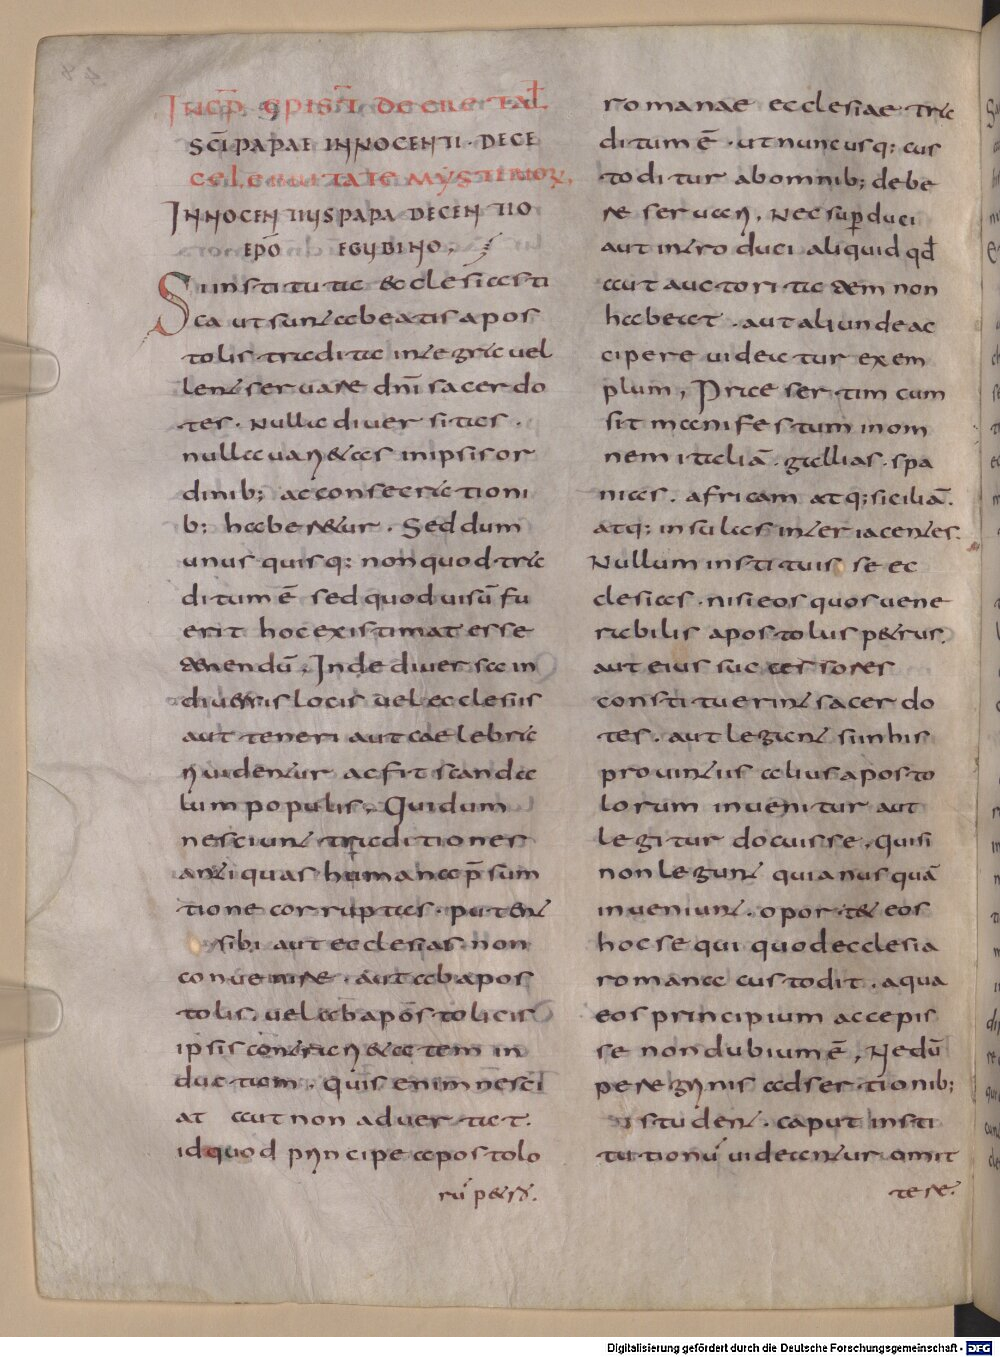 Incp̄ epist̄ decretal̄
Sc̄i papae Innocenti · de ce
celebritate mysterior̄.
Innocentius papa Decentio
ep̄o Egubino.
Si instituta ecclesiasti
ca ut sunt a beatis apos
tolis tradita integra vel
lent servare dn̄i sacerdo
tes. Nulla diversitas.
nulla varietas in ipsis or
dinib; ac consecrationi
b; haberetur. Sed dum
unusquisq; non quod tra
ditum ē sed quod visū fu
erit hoc existimat esse
tenendū. Inde diversa in
diversis locis vel ecclesiis
aut teneri aut caelebra
ri videntur ac fit scanda
lum populis. Qui dum
nesciunt traditiones
antiquas humana p̄sum
tione corruptas. putent
sibi aut ecclesias non
convenire. aut ab apos
tolis. vel ab apostolicis
ipsis contrarietatem in
ductam. quis enim nesci
at aut non advertat.
id quod principe apostolo
rū petro.
romanae ecclesiae tra
ditum ē. ut nunc usq; cus
toditur ab omnib; debe
re servari. Nec sup̄duci
aut introduci aliquid qd̄
aut auctoritatem non
habeat. aut aliunde ac
cipere videatur exem
plum, Praesertim cum
sit manifestum in om
nem italiā. gallias. spa
nias. africam atq; siciliā.
atq; insulas interiacentes.
Nullum instituisse ec
clesias. nisi eos quos vene
rabilis apostolus petrus.
aut eius successores
constituerint sacerdo
tes. aut legant si in his
provintiis alius aposto
lorum invenitur aut
legitur docuisse. Qui si
non legunt quia nusquā
inveniunt. oportet eos
hoc sequi quod ecclesia
romana custodit. a qua
eos principium accepis
se non dubium ē, Ne dū
peregrinis adsertionib;
student. caput insti
tutionū videantur omit
tere.
Digitalisierung gefördert durch die Deutsche Forschungsgemeinschaft - DFG